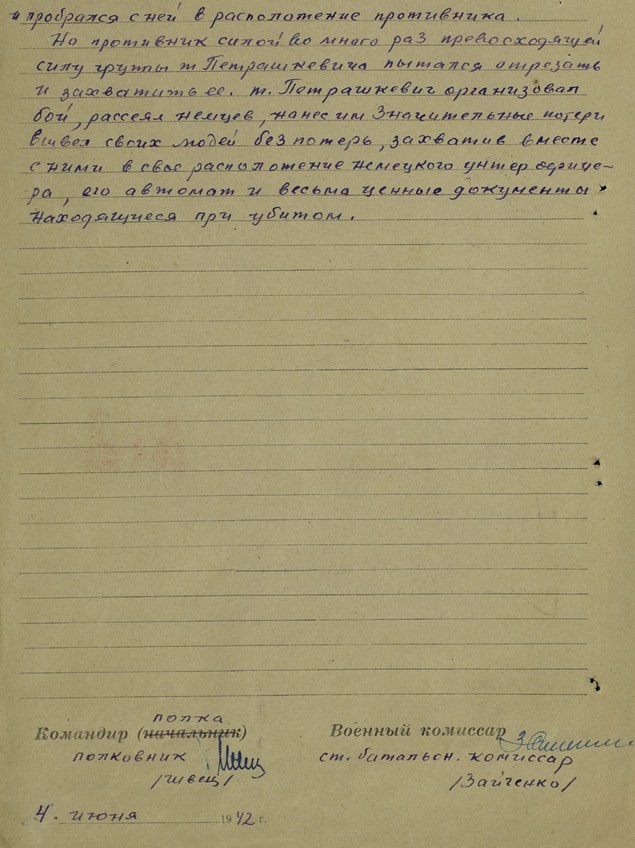 и пробрался с ней в расположение противника.
Но противник силой во много раз превосходящей
силу группы т Петрашкевича пытался отрезать
и захватить ее. т. Петрашкевич организовал
бой, рассеял немцев, нанес им значительные потери
вывел своих людей без потерь, захватив вместе
с ними в свое расположение немецкого унтер офице-
ра, его автомат и весьма ценные документы
находящиеся при убитом.
полка
Командир (начальник)
Военный комиссар
полковник
ст. батальон. комиссар
/Швец/
/Зайченко/
4. июня 1942 г.